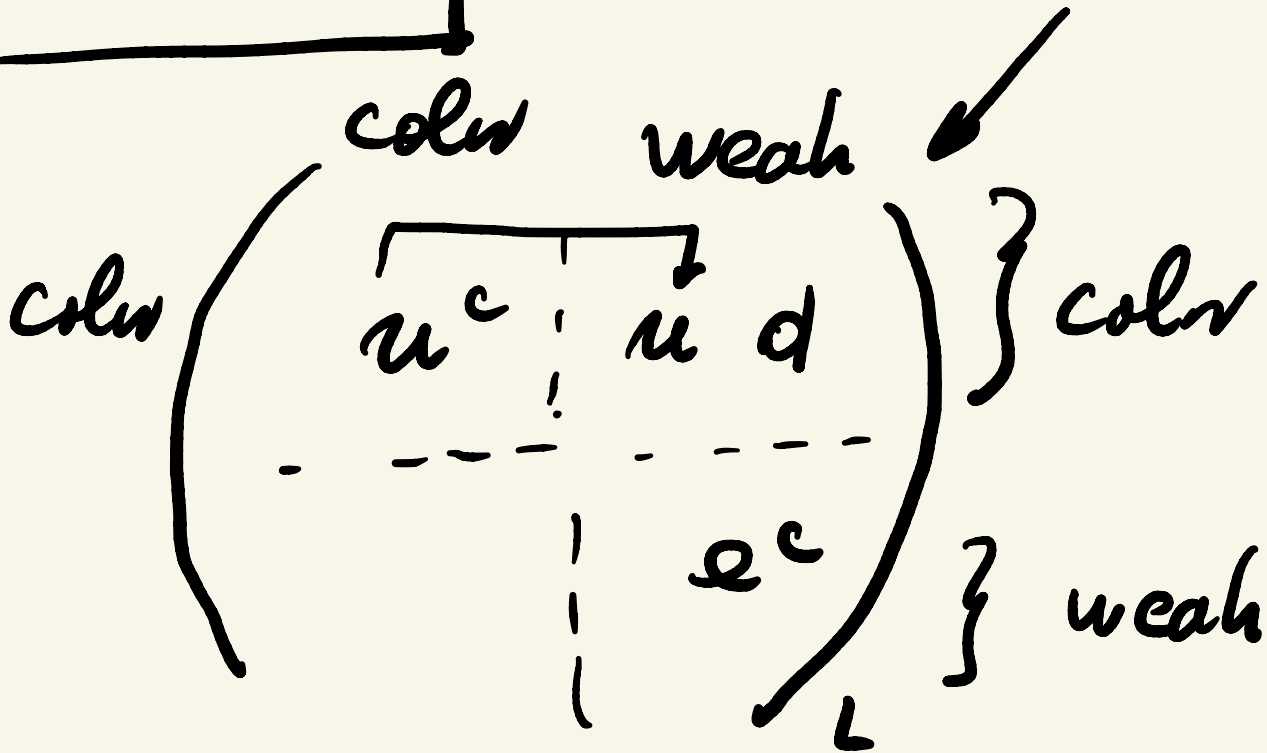 color weak
color u^c u d color
e^c weak
L